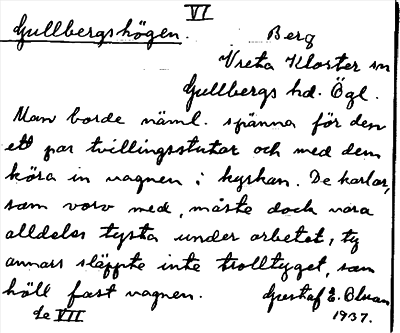 VI
Gullbergshögen. Berg
Vreta Kloster sn
Gullbergs hd. Ögl.
Man borde näml. spänna för den
ett par tvillingsstutar och med dem
köra in vagnen i kyrkan. De karlar,
som voro med, måste dock vara
alldeles tysta under arbetet, ty
annars släppte inte trolltyget, som
höll fast vagnen. Gustaf E. Bluan
se VII 1937.